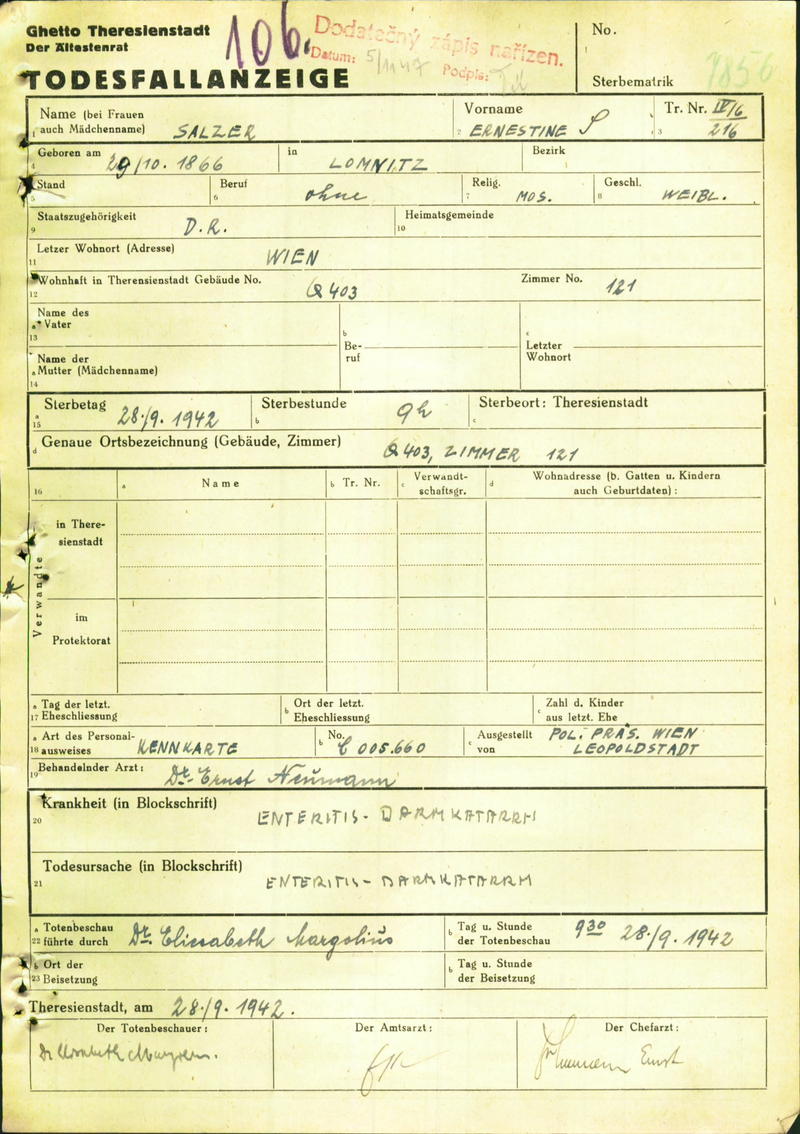 Ghetto Theresienstadt
Der Ältestenrat
106.
Dodatečný zápis nařízen.
Datum: 5/11 47 Podpis:
No.
TODESFALLANZEIGE
Sterbematrik 7856
Name (bei Frauen
1 auch Mädchenname) SALZER
Vorname
2 ERNESTINE S
Tr. Nr. IV/6
3 216
Geboren am
4 29/10. 1866
in LOMNITZ
Bezirk
Stand
5
Beruf
6 ohne
Relig.
7 MOS.
Geschl.
8 WEIBL.
Staatszugehörigkeit
9 D.R.
Heimatsgemeinde
10
Letzer Wohnort (Adresse)
11 WIEN
Wohnhaft in Therensienstadt Gebäude No.
12 Q 403
Zimmer No. 121
Name des
a Vater
13
b
Be-
ruf
c
Letzter
Wohnort
Name der
a Mutter (Mädchenname)
14
Sterbetag
a
15 28./9. 1942
Sterbestunde
b 9h
Sterbeort: Theresienstadt
c
d Genaue Ortsbezeichnung (Gebäude, Zimmer) Q 403, ZIMMER 121
16
a Name
b Tr. Nr.
c Verwandt-
schaftsgr.
d Wohnadresse (b. Gatten u. Kindern
auch Geburtdaten) :
Verwandte
in There-
sienstadt
im
Protektorat
a Tag der letzt.
17 Eheschliessung
b Ort der letzt.
Eheschliessung
c Zahl d. Kinder
aus letzt. Ehe
a Art des Personal-
18 ausweises KENNKARTE
b No. C 005.660
c Ausgestellt
von
POL. PRÄS. WIEN
LEOPOLDSTADT
Behandelnder Arzt:
19 Dr. Ernst Neumann
Krankheit (in Blockschrift)
20 ENTERITIS - DARMKATARRH
Todesursache (in Blockschrift)
21 ENTERITIS - DARMKATARRH
a Totenbeschau
22 führte durch Dr. Elisabeth Margolius
b Tag u. Stunde
der Totenbeschau 9 30 28./9. 1942
b Ort der
23 Beisetzung
b Tag u. Stunde
der Beisetzung
Theresienstadt, am 28./9. 1942.
Der Totenbeschauer:
Der Amtsarzt:
Der Chefarzt: